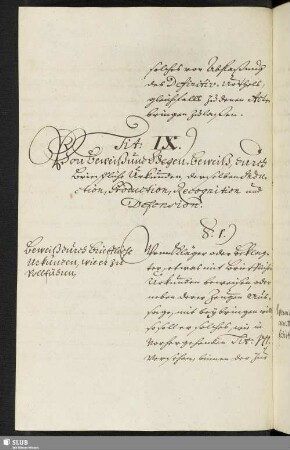 solches vor Abfaßung
des Definitiv-Urthels
gleichfalls zu denen Acten
bringen zu laßen.
Tit: IX.)
Von Beweiß und Gegen-Beweiß, durch
Briefliche Uhrkunden, derselben Edu-
ction, Production, Recognition und
Defension.
§. 1.)
Beweiß durch briefliche
Urkunden, wie er zu
vollführen.
Wenn Kläger oder Beklag-
ter, etwas mit brieflichen
Urkunden beweisen, oder
neben derer Zeugen Auß-
sage, mit beybringen will,
so soll er solches, wie in
vorhergehenden Tit: VII.
versehen, binnen der zur
SLUB